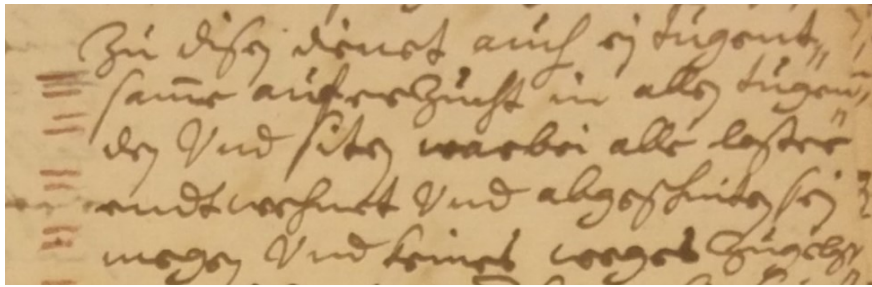 Zu disen dienet auch ein tugent„
same auferzucht in allen tugen„
den Vnd siten warbei alle laster
endtwehnet Vnd abgeschniten sein
megen Vnd keines weges